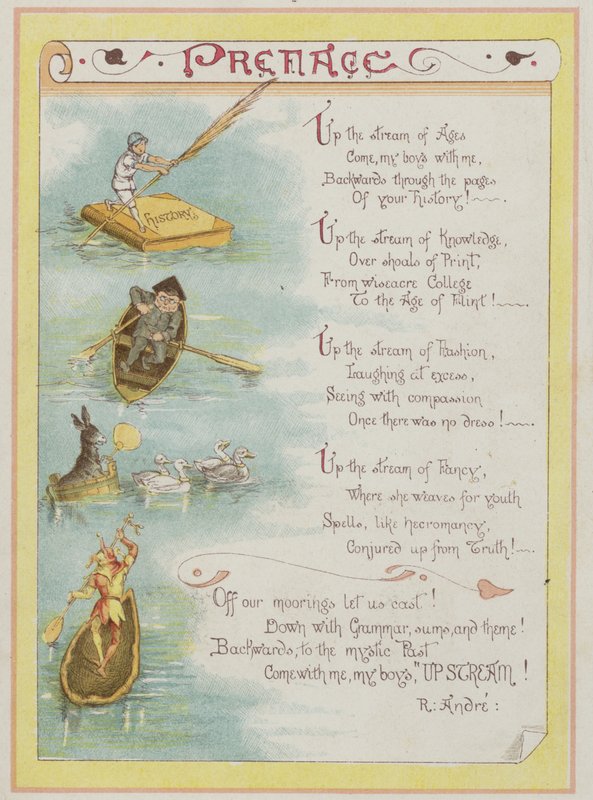 PREFACE
Up the stream of Ages
Come, my boys with me,
Backwards through the pages
Of your history!
Up the stream of Knowledge,
Over shoals of Print,
From wiseacre College
To the Age of Flint!
Up the stream of Fashion,
Laughing at excess,
Seeing with compassion
Once there was no dress!
Up the stream of Fancy,
Where she weaves for youth
Spells, like necromancy,
Conjured up from Truth!
Off our moorings let us cast!
Down with Grammar, sums, and theme!
Backwards, to the mystic Past
Come with me, my boys, "UP STREAM!
R: André:
HISTORY